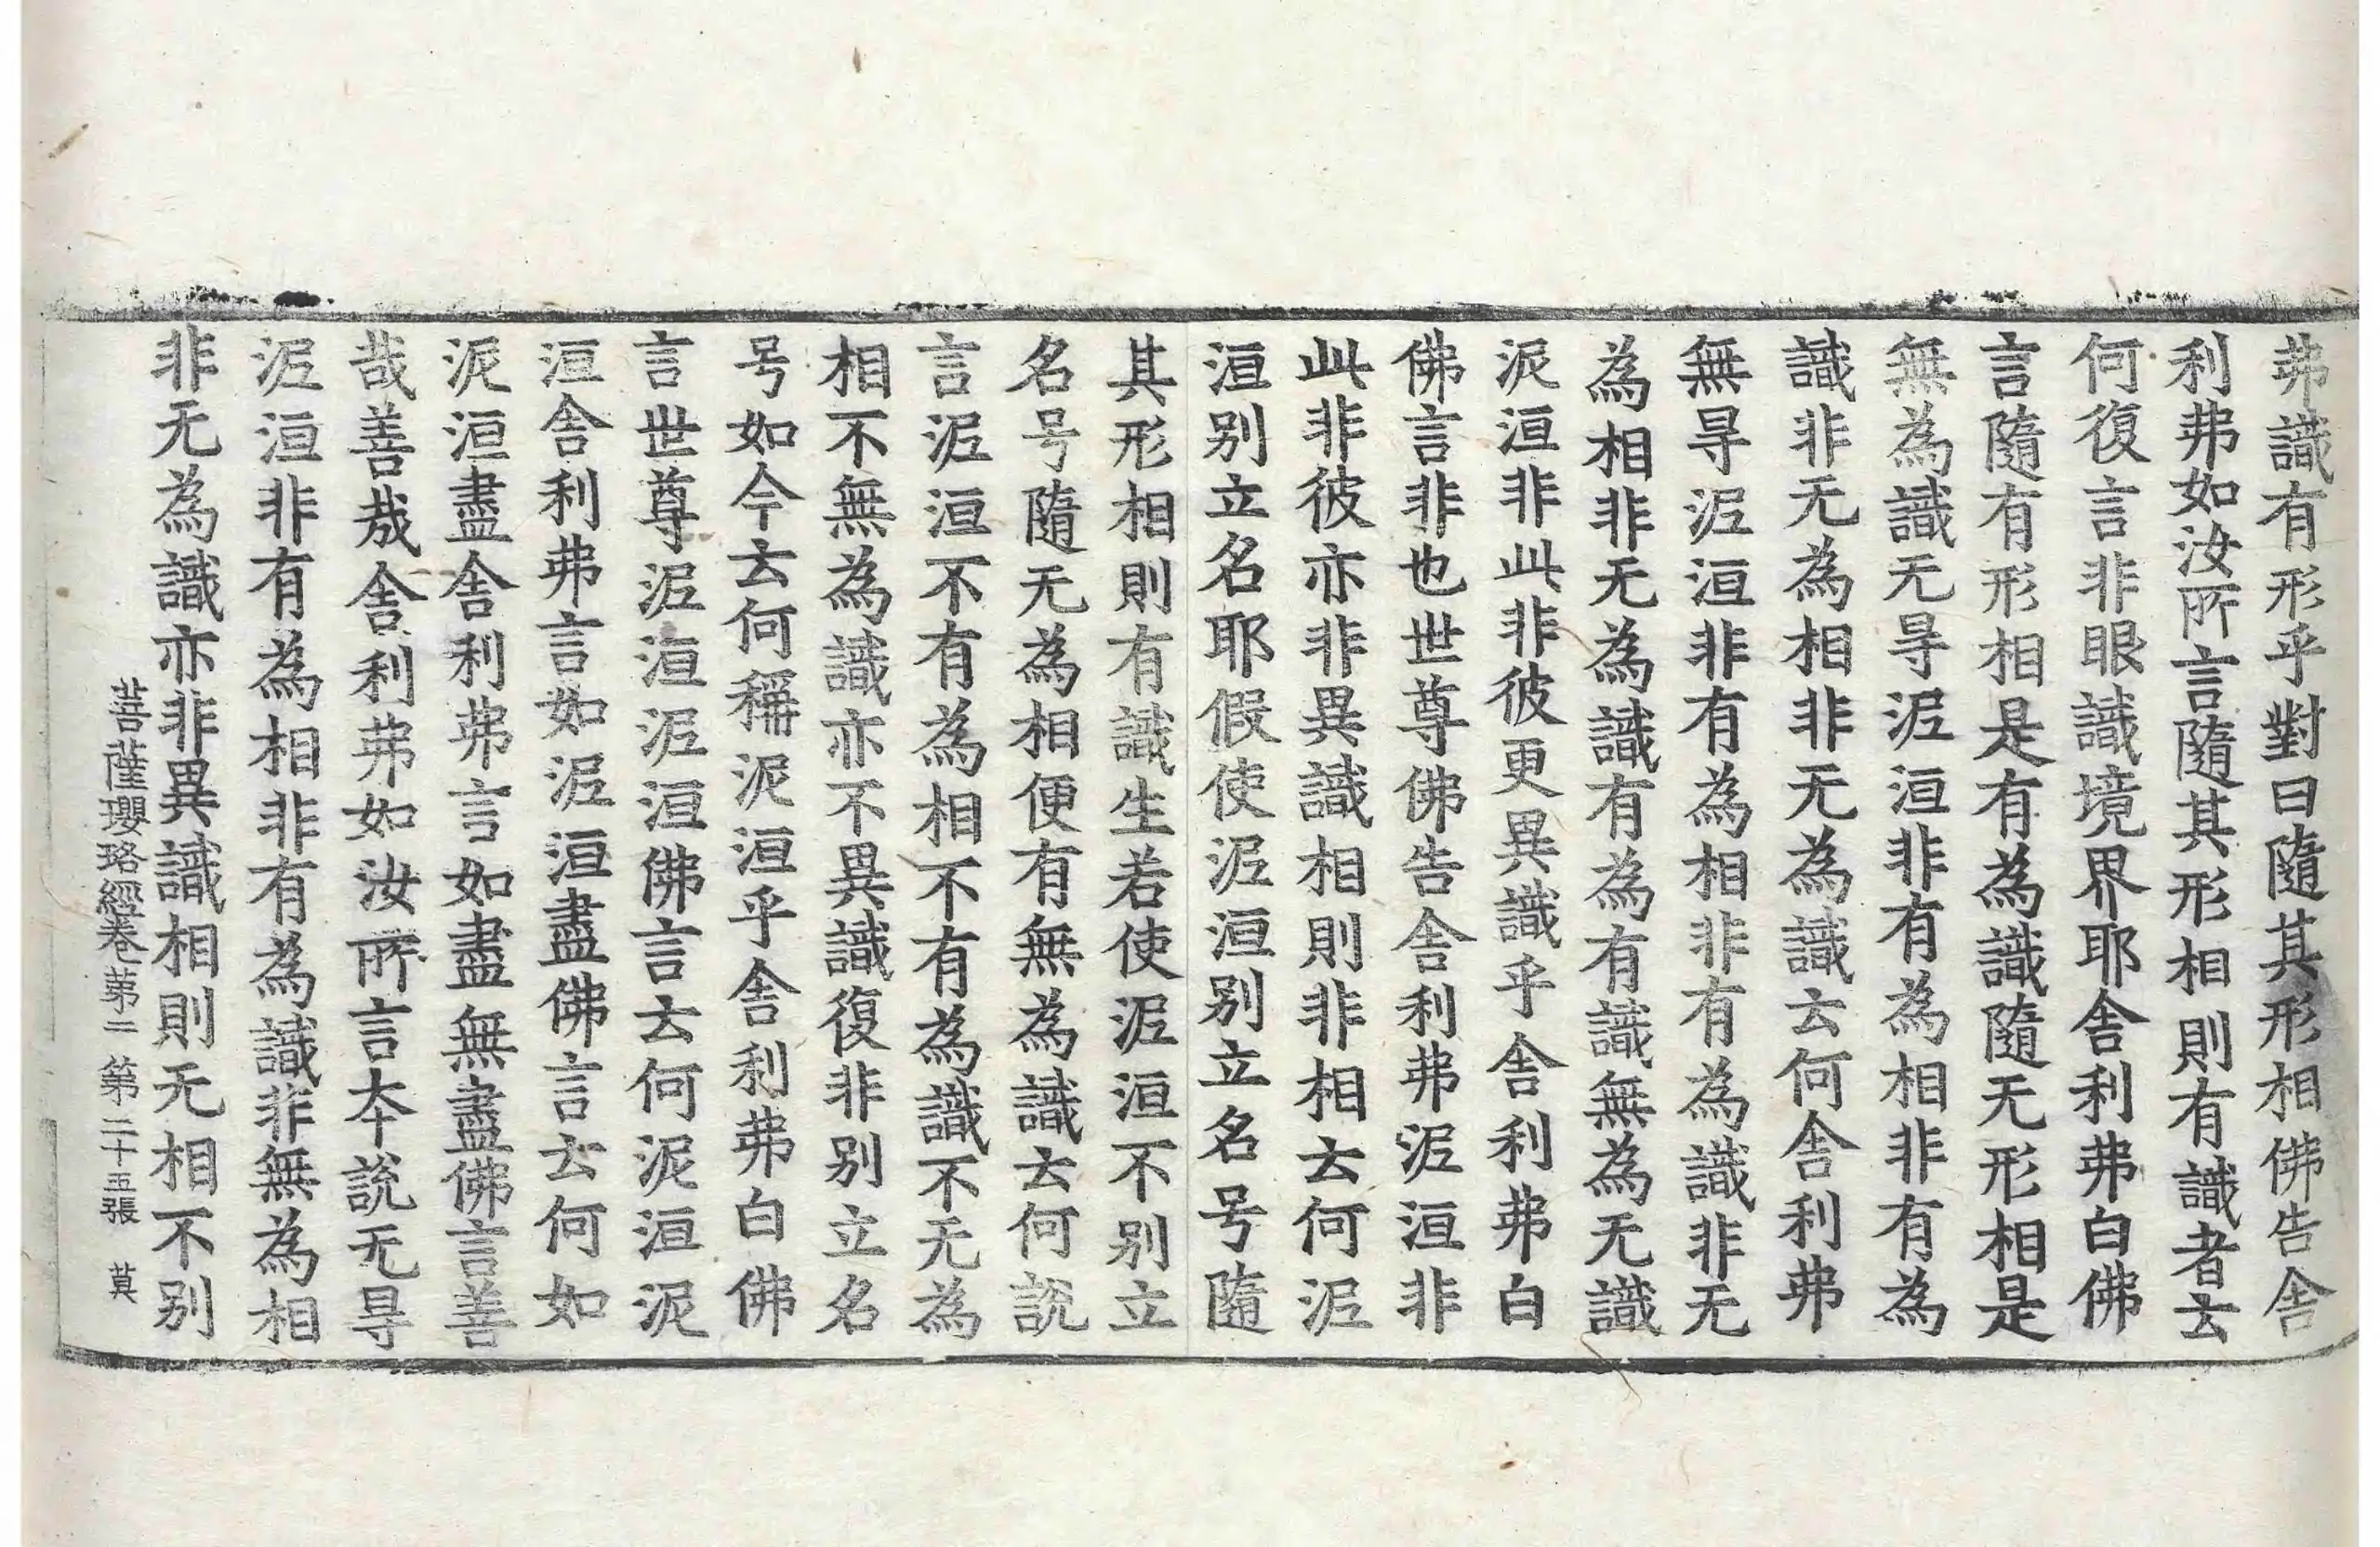 弗識有形乎對曰隨其形相佛告舍
利弗如汝所言隨其形相則有識者云
何復言非眼識境界耶舍利弗白佛
言隨有形相是有為識隨无形相是
無為識无㝵泥洹非有為相非有為
識非无為相非无為識云何舍利弗
無㝵泥洹非有為相非有為識非无
為相非无為識有為有識無為无識
泥洹非此非彼更異識乎舍利弗白
佛言非也世尊佛告舍利弗泥洹非
此非彼亦非異識相則非相云何泥
洹別立名耶假使泥洹別立名号隨
其形相則有識生若使泥洹不別立
名号隨无為相便有無為識云何說
言泥洹不有為相不有為識不无為
相不無為識亦不異識復非別立名
号如今云何稱泥洹乎舍利弗白佛
言世尊泥洹泥洹佛言云何泥洹泥
洹舍利弗言如泥洹盡佛言云何如
泥洹盡舍利弗言如盡無盡佛言善
哉善哉舍利弗如汝所言本說无㝵
泥洹非有為相非有為識非無為相
非无為識亦非異識相則无相不別
菩薩瓔珞經卷第二 第二十五張 莫